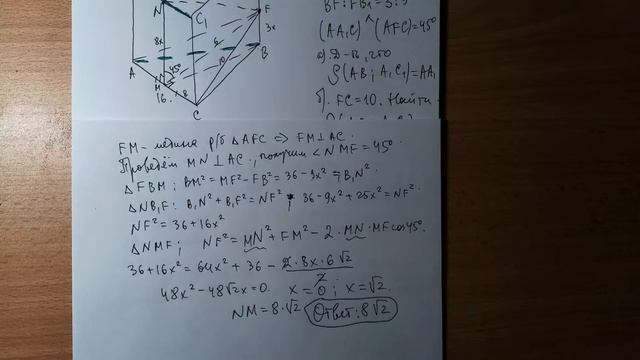 N
C₁
F
8x
3x
45°
A
M
B
10
8
16.
C
BF:FB₁=3:5
(AA₁C)^(AFC)=45°
а). Д-ть, что
ρ(AB; A₁C₁)=AA₁
б). FC=10. Найти
FM-медиана р/б ΔAFC ⇒ FM⊥AC.
Проведём MN⊥AC, получим <NMF=45°.
ΔFBM: BM²=MF²-FB²=36-9x²=B₁N².
ΔNB₁F: B₁N²+B₁F²=NF²; 36-9x²+25x²=NF².
NF²=36+16x²
ΔNMF; NF²=MN²+FM²-2·MN·MFcos45°.
36+16x²=64x²+36-2·8x·6√2
2
48x²-48√2x=0. x=0; x=√2.
NM=8·√2 Ответ: 8√2